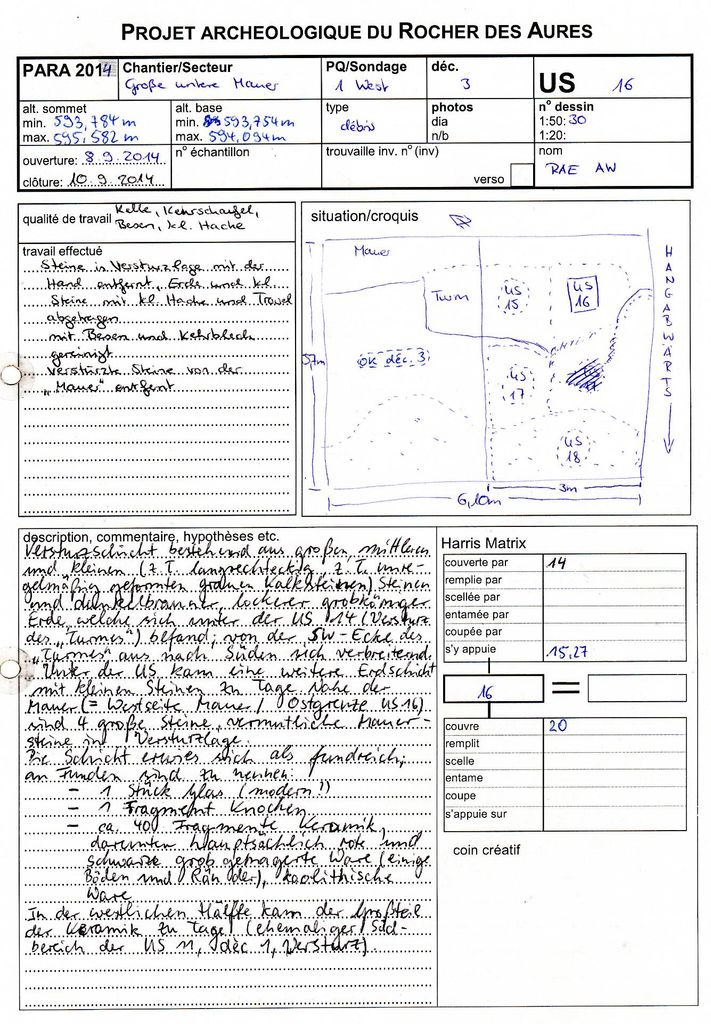 PROJET ARCHEOLOGIQUE DU ROCHER DES AURES
PARA 2014
Chantier/Secteur
Große untere Mauer
PQ/Sondage
1 West
déc.
3
US 16
alt. sommet
min. 593,784 m
max. 595,582 m
alt. base
min. 593,754 m
max. 594,094 m
type
débris
photos
dia
n/b
n° dessin
1:50: 30
1:20:
ouverture: 8.9.2014
clôture: 10.9.2014
n° échantillon
trouvaille inv. n° (inv)
verso
nom
RAE AW
qualité de travail Kelle, Kehrschaufel,
Besen, kl. Hacke
travail effectué
Steine in Versturzlage mit der
Hand entfernt, Erde und kl.
Steine mit kl. Hacke und Trowel
abgetragen
mit Besen und Kehrblech
gereinigt
verstürzte Steine von der
"Mauer" entfernt
situation/croquis
Mauer
Turm
US 15
US 16
OK déc. 3
US 17
US 18
3m
6,10m
HANGABWÄRTS
description, commentaire, hypothèses etc.
Versturzschicht bestehend aus großen, mittleren
und kleinen (z.T. langrechteckig, z.T. unre-
gelmäßig geformten grauen Kalksteinen) Steinen
und dunkelbrauner, lockerer grobkörniger
Erde, welche sich unter der US 14 (Versturz
des "Turmes") befand; von der SW-Ecke des
"Turmes" aus nach Süden sich verbreiternd.
Unter der US kam eine weitere Erdschicht
mit kleinen Steinen zu Tage. Nahe der
Mauer (= Westseite Mauer / Ostgrenze US 16)
sind 4 große Steine, vermutliche Mauer-
steine in Versturzlage.
Die Schicht erwies sich als fundreich;
an Funden sind zu nennen:
- 1 Stück Glas (modern!)
- 1 Fragment Knochen
- ca. 400 Fragmente Keramik,
darunter hauptsächlich rote und
schwarze grob gemagerte Ware (einige
Böden und Ränder), kaolithische
Ware
In der westlichen Hälfte kam der Großteil
der Keramik zu Tage (ehemaliger Süd-
bereich der US 11, déc 1, Versturz)
Harris Matrix
couverte par 14
remplie par
scellée par
entamée par
coupée par
s'y appuie 15,27
16 =
couvre 20
remplit
scelle
entame
coupe
s'appuie sur
coin créatif